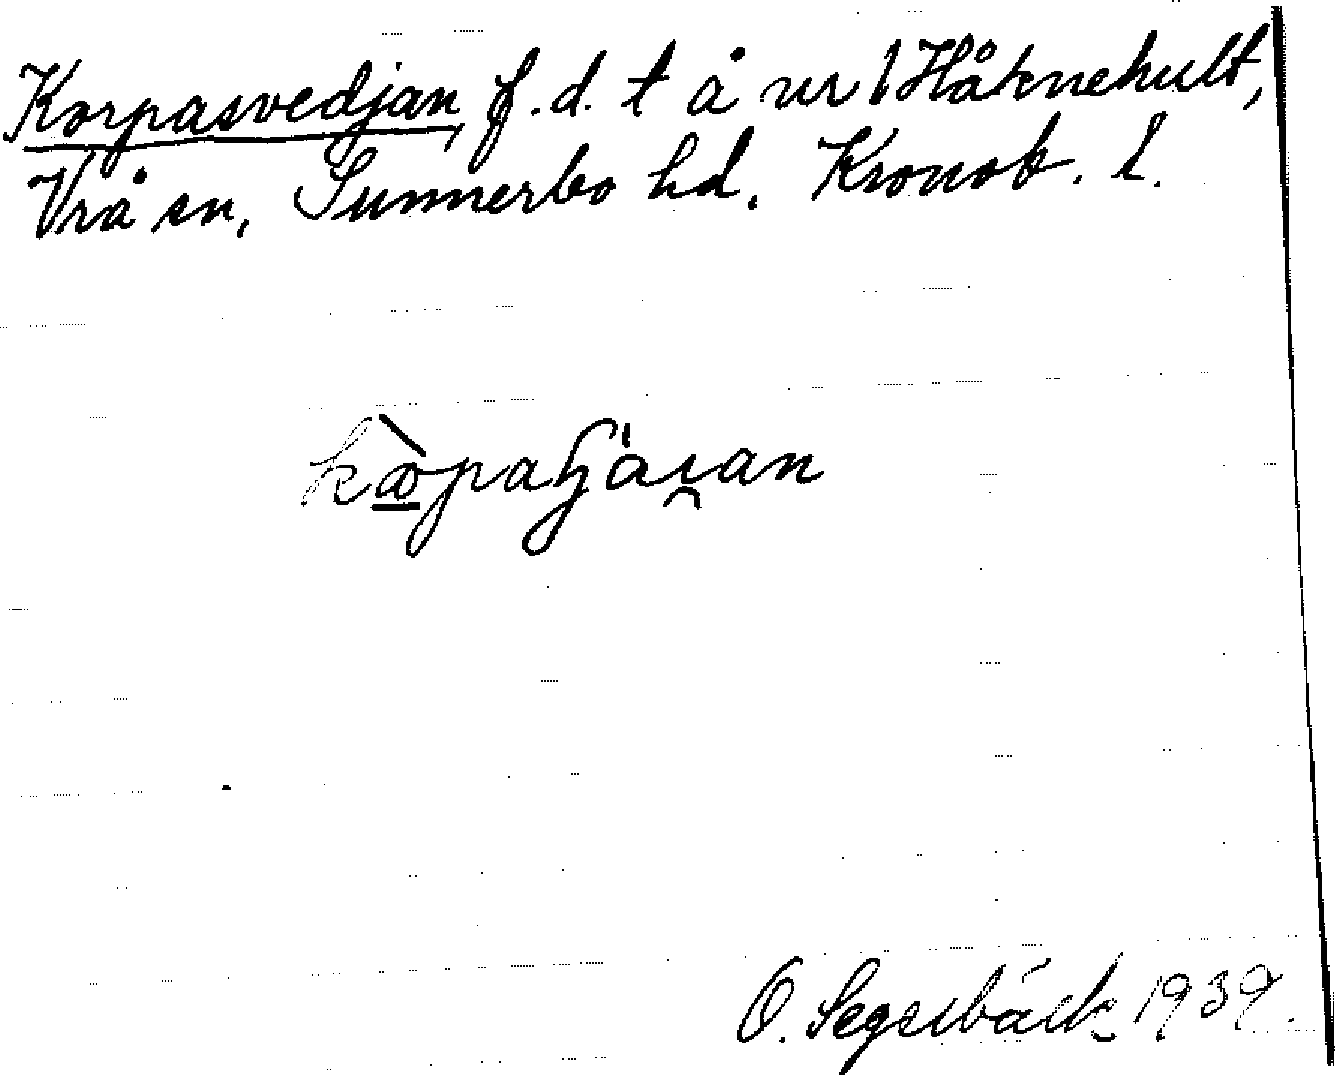 Korpasvedjan, f.d. t å nr 1 Håknehult,
Vrå sn, Sunnerbo hd. Kronob. l.
O. Segerbäck 1939.